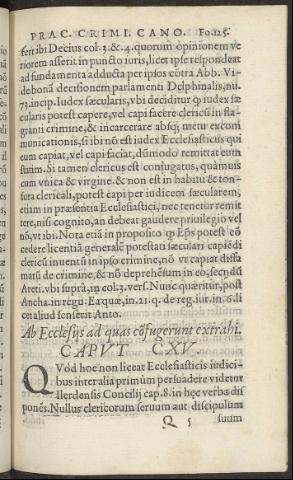 PRAC. CRIMI. CANO. Fo. 125.
fert ibi Decius col. 3. & 4. quorum opinionem ve
riorem asserit in puncto iuris, licet ipse respondeat
ad fundamenta adducta per ipsos cōtra Abb. Vi-
de bonā decisionem parlamenti Delphinalis, nu.
73. incip. Iudex sæcularis, vbi deciditur ꝙ iudex sæ
cularis potest capere, vel capi facere clericū in fla-
granti crimine, & incarcerare absq; metu excom
municationis, si ibi nō est iudex Ecclesiasticus qui
eum capiat, vel capi faciat, dūmodo remittat eum
statim. Si tamen clericus est coniugatus, quāmuis
cum vnica & virgine. & non est in habitu & ton-
sura clericali, potest capi per iudicem sæcularem,
etiam in præsentia Ecclesiastici, nec tenetur remit
tere, nisi cognito, an debeat gaudere priuilegio vel
nō, vt ibi. Nota etiā in proposito ꝙ Eps̄ potest cō
cedere licentiā generalē potestati sæculari capiēdi
clericū inuentū in ipso crimine, nō vt capiat diffa
matū de crimine, & nō deprehēsum in eo, secūdū
Areti. vbi suprà, in col. 3. vers. Nunc quæritur, post
Ancha. in regu. Ea quæ, in. 21. q. de reg. iur. in. 6. li
cet aliud senserit Anto.
Ab Ecclesijs ad quas cōfugerunt extrahi.
CAPVT CXV.
QVòd hoc non liceat Ecclesiasticis iudici-
bus inter alia primùm persuadere videtur
Ilerdensis Concilij cap. 8. in hęc verba dis
ponēs. Nullus clericorum seruum aut discipulum
Q 5 suum